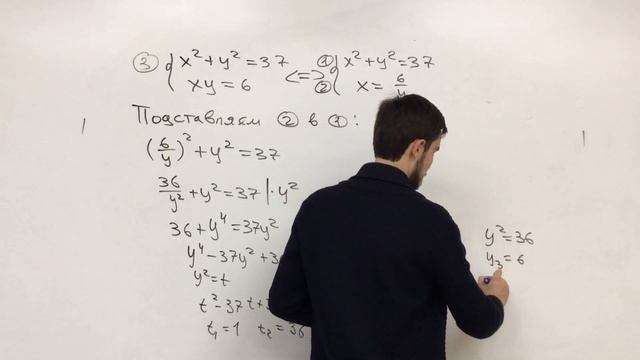 ③ { x² + y² = 37 <=> ① { x² + y² = 37
xy = 6 ② x = 6/y
Подставляем ② в ①:
(6/y)² + y² = 37
36/y² + y² = 37 | · y²
36 + y⁴ = 37y²
y⁴ - 37y² + 3
y² = t
t² - 37t + 3
t₁ = 1 t₂ = 36
y² = 36
y₃ = 6